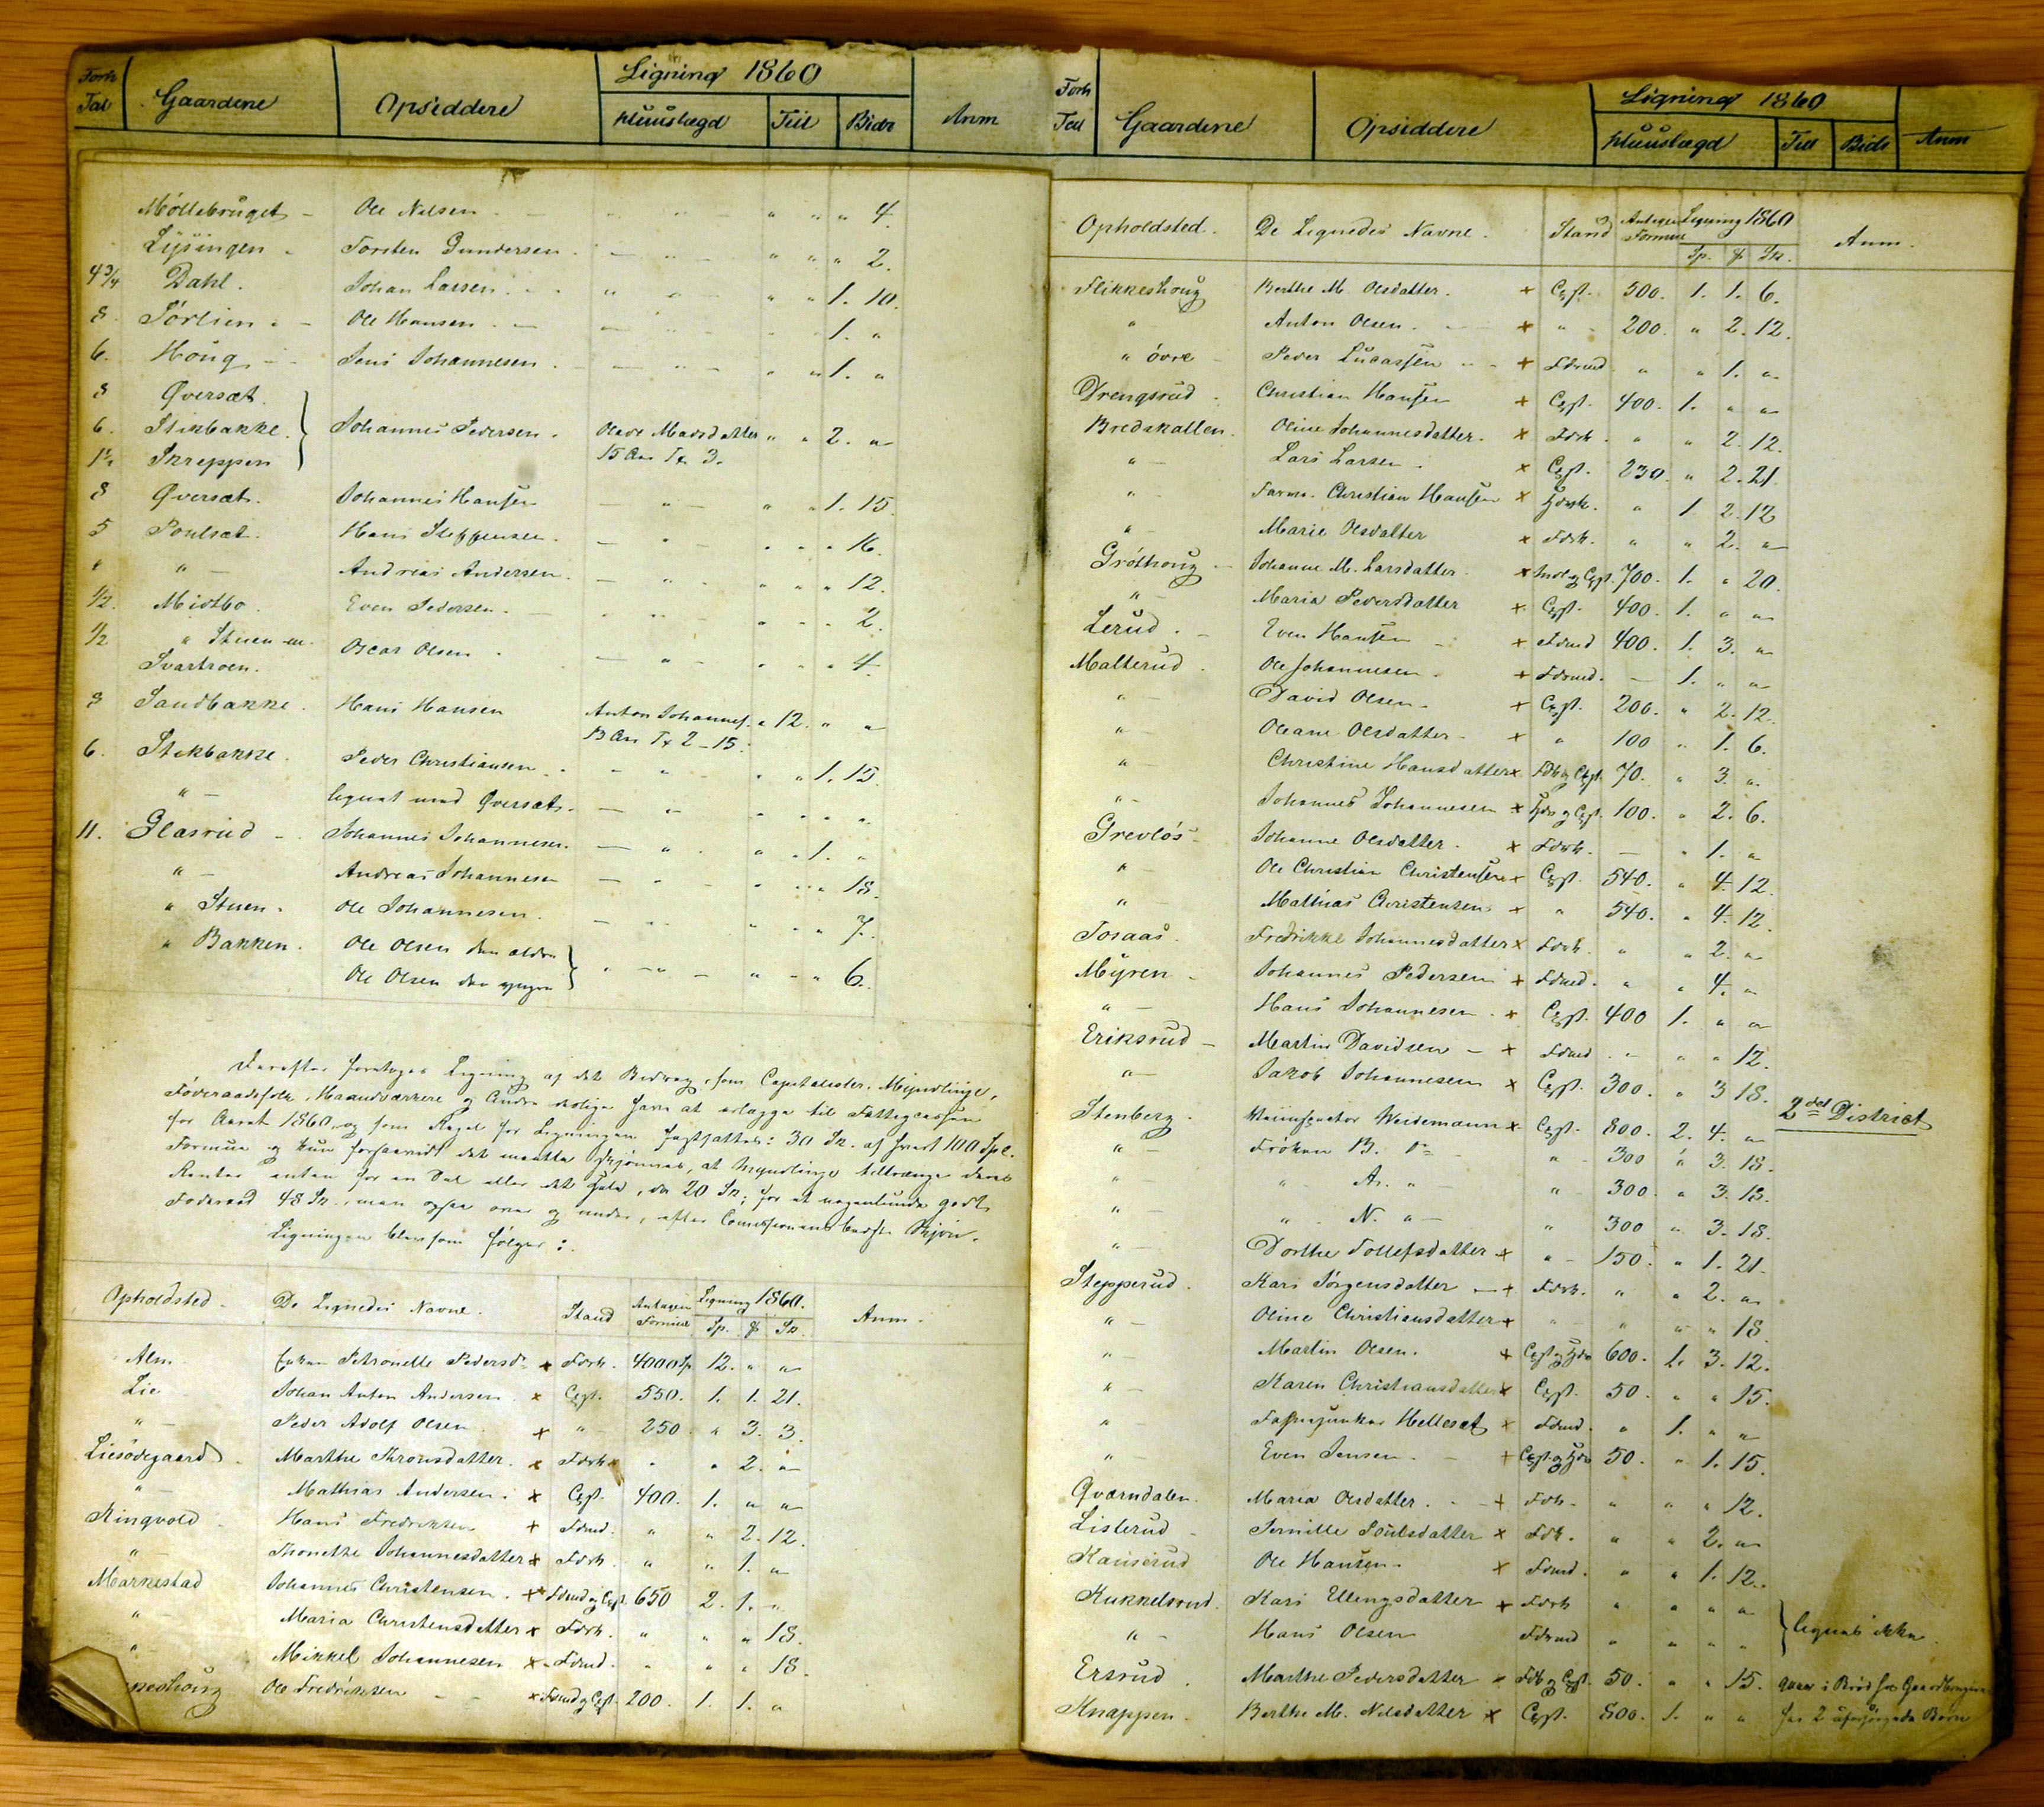 Forh Tal Gaardene Opsiddere Ligning 1860 Anm
Huuslægd Tiil Bidr
Møllebruget - Ole Nilsen - " " " 4
Lysingen - Torsten Gundersen - " " " 2.
4 3/4 Dahl. Johan Larsen " " 1. 10.
8 Sørlien - Ole Hansen - 1. "
6. Houg - Jens Johannesen " " 1. "
8 Øversæt.
6. Stikbakke. Johannes Pedersen. Oleave Madsdatter " " 2. "
1 1/2 Skreppen 15 Aar Tx 3.
8 Øversæt. Johannes Hansen - " - " " 1. 15.
5 Poulsæt. Hans Steffensen - " - " " " 16.
" " - Andreas Andersen. - " " " " 12.
1/2. Midtbo. Even Pedersen. " " " 2.
1/2 " Stuen
Svartroen. Oscar Olsen - " - " " " 4
8 Sandbakke. Hans Hansen Anton Johannes. " 12. " "
13 Aar Tx 2-15.
6. Stikbakke. Peder Christiansen - " " " 1. 15.
" - lignet med Øversæt. - " - " " " "
11. Glasrud - Johannes Johannesen. - " " " 1. "
" - Andreas Johannesen - " - " " " 18.
" Stuen. Ole Johannesen. " " " 7.
" Bakken. Ole Olsen den ældre
Ole Olsen den yngre " - " - " " " 6.
Derefter foretoges Ligning af det Bidrag, som Capitalister, Myndlinge,
Føderaadsfolk, Haandværkere og Andre skulle have at erlægge til Fattigcassen
for Aaret 1860, og som Regel for Ligningen fastsattes: 30 Sk. af hvert 100 Spd.
Formue og kun forsaavidt det maatte skjønnes, at Myndlinge tiltrænge deres
Renter enten for en Deel eller det Hele, da 20 Sk; for et nogenlunde godt
Foderaad 48 Sk. men ogsaa over og under, efter Comissionens bedste Skjøn.
Ligningen blev som følger:
Opholdsted. De Lignedes Navne. Stand Antagen Formue Ligning 1860. Anm.
Sp. ß Sk.
Alm Enken Petronelle Pedersd. x Fdrk. 4000 Sp 12. " "
Lie Johan Anton Andersen x Cpst. 550. 1. 1. 21.
" - Peder Adolf Olsen x " - 250 " 3. 3.
Liesødegaard. Marthe Thronsdatter. x Fdrk " " 2. "
" - Mathias Andersen. x Cpst. 400. 1. " "
Ringvold Hans Fredriksen + Fdmd. " " 2. 12.
" Thonette Johannesdatter x Fdrk. " " 1. "
Markestad Johannes Christensen. x Fdmd og Cpst. 650 2. 1. "
" Maria Christensdatter x Fdrk. " " " 18.
" Mikkel Johannesen x Fdmd. " " " 18.
Ole Fredriksen - - x Fdmd og Cpst. 200. 1. 1. "
Forh Tal Gaardene Opsiddere Ligning 1860 Anm
Huuslægd Tiil Bidr
Opholdsted. De Lignedes Navne. Stand Antagen Formue Ligning 1860 Anm.
Sp. ß Sk.
Flikkeshoug Berthe M. Olsdatter. + Cpst. 500. 1. 1. 6.
" Anton Olsen. + " - 200. " 2. 12.
" övre - Peder Lucassen - + Fdrmd " " 1. "
Drengsrud - Christian Hansen + Cpst. 400. 1. " "
Bredskallen. Oline Johannesdatter. x Fdrk. " " 2. 12.
" - Lars Larsen. x Cpst. 230. " 2. 21.
" - Christian Hansen x " 1. 2. 12
" - Marie Olsdatter x Fdrk. " " 2. "
Gróthoug - Johanne M. Larsdatter. x 700. 1. " 20.
" - Maria Pedersdatter x Cpst. 400. 1. " "
Lerud. - Even Hansen - + Fdmd 400. 1. 3. "
Malterud. Ole Johannesen. + Fdrmd. - 1. " "
" - David Olsen. + Cpst. 200. " 2. 12.
" - Oleane Olsdatter - + " 100 " 1. 6.
" - Christine Hansdatter x Fdk og Cpst. 70. " 3. "
" - Johannes Johannesen x Hdv og Cpst. 100. " 2. 6.
Grevlós - Johanne Olsdatter. x Fdrk. - " 1. "
" Ole Christian Christensen x Cpst. 540. " 4. 12.
" - Mathias Christensen + " 540. " 4. 12.
Toraas. Fredrikke Johannesdatter x Fdrk. " " 2. "
Myren - Johannes Pedersen + Fdmd. " " 4. "
" - Hans Johannesen. + Cpst. 400 1. " "
Eriksrud - Martin Davidsen - + Fdmd. " " " 12.
" - Jakob Johannesen x Cpst. 300. " 3 18.
Stenberg. Weidemann x Cpst. 800. 2. 4. " 2det District
" - Frøken B. Do " - 300 " 3. 18.
" - " - A. " - " - 300. " 3. 18.
" - " N. " - " 300 " 3. 18.
" - Dorthe Tollefsdatter + " - 150. " 1. 21.
Stepperud. Kari Jörgensdatter - + Fdrk. " " 2. "
" - Oline Christiansdatter + " - " " " 18.
" - Martin Olsen. + Cpst og Hdv 600. 1. 3. 12.
" - Karen Christiansdatter x Cpst. 50. " " 15.
" - Fastejunker Hellesæt x Fdmd. " 1. " "
" - Even Jensen. - + Cpst. og Hdv 50. " 1. 15.
Qværndalen. Maria Olsdatter. - + Fdk. " " " 12.
Listerud - Pernille Poulsdatter x Fdk. " " 2. "
Kauserud Ole Hansen. x Fdmd. " " 1. 12.
Kukkelsrud. Kari Ellingsdatter + Fdrk " " " "
" - Hans Olsen Fdrmd " " " " lignes ikke.
Ersrud. Marthe Pedersdatter x Fdk og Cpst. 50. " " 15.
Knappen. Berthe M. Nilsdatter x Cpst. 800. 1. " " har 2 uforsörgede Börn